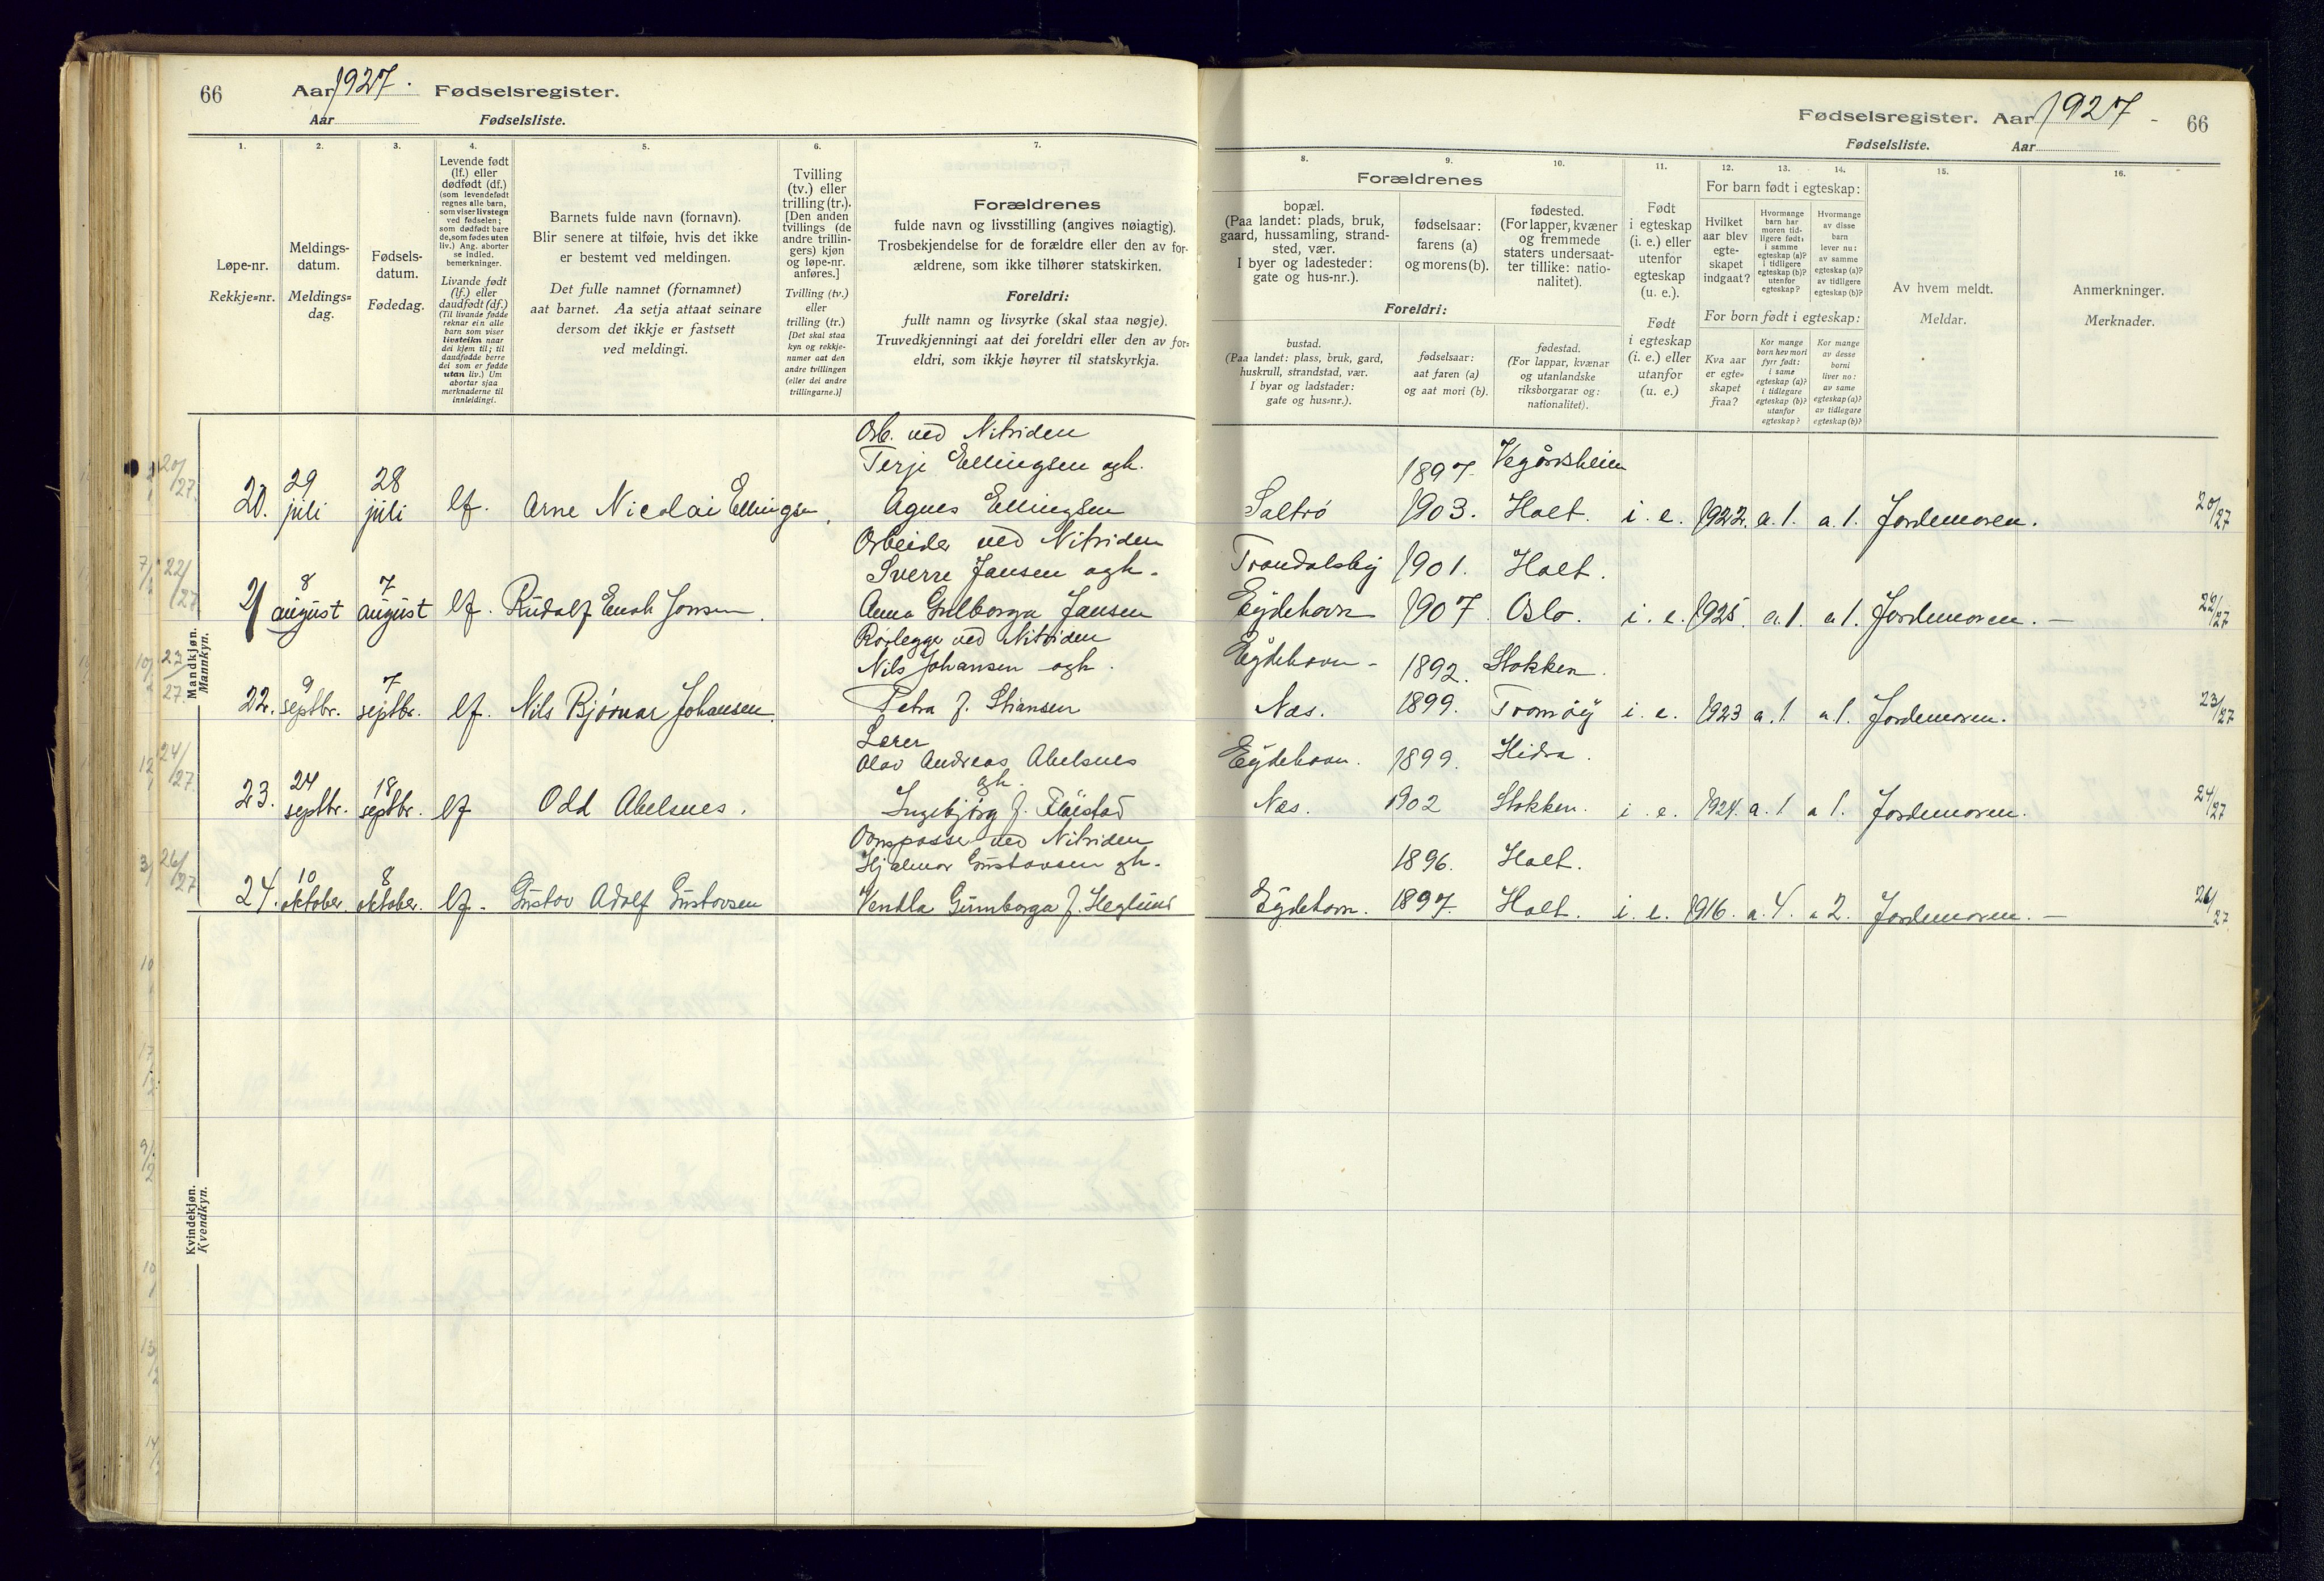 66
Aar 1927.
Fødselsregister.
Aar
Fødselsliste.
1.
Løpe-nr.
Rekkje=nr.
2.
Meldings-
datum.
Meldings=
dag.
3.
Fødsels-
datum.
Fødedag.
4.
Levende født
(lf.) eller
dødfødt (df.)
(som levendefødt
regnes alle barn,
som viser livstegn
ved fødselen;
som dødfødt bare
de, som fødes uten
liv.) Ang. aborter
se indled.
bemerkninger.
Livande født
(lf.) eller
daudfødt (df.)
(Til livande fødde
reknar ein alle
barn som viser
livsteikn naar
dei kjem til; til
daudfødde berre
dei som er fødde
utan liv.) Um
abortar sjaa
merknaderne til
innleidingi.
5.
Barnets fulde navn (fornavn).
Blir senere at tilføie, hvis det ikke
er bestemt ved meldingen.
Det fulle namnet (fornamnet)
aat barnet. Aa setja attaat seinare
dersom det ikkje er fastsett
ved meldingi.
6.
Tvilling
(tv.) eller
trilling (tr.).
[Den anden
tvillings (de
andre trillin-
gers) kjøn
og løpe-nr.
anføres.]
Tvilling (tv.)
eller
trilling (tr.)
[Det skal staa
kyn og rekkje-
numer aat den
andre tvillingen
(eller dei andre
trillingarne.)]
7.
Forældrenes
fulde navn og livsstilling (angives nøiagtig).
Trosbekjendelse for de forældre eller den av for-
ældrene, som ikke tilhører statskirken.
Foreldri:
fullt namn og livsyrke (skal staa nøgje).
Truvedkjenningi aat dei foreldri eller den av for=
eldri, som ikkje høyrer til statskyrkja.
Mandkjøn.
Mannkyn.
20/27.
20.
29 juli
28 juli
lf.
Arne Nicolai Ellingsen.
Arb. ved Nitriden
Terje Ellingsen ogh.
Agnes Ellingsen
22/27
21
8 august
7 august
lf.
Rudolf Enok Jansen.
Arbeider ved Nitriden
Sverre Jansen ogh.
Anna Gulborga Jansen
23/27
22.
9 septbr.
7 septbr.
lf.
Nils Bjørnar Johansen.
Rørlegger ved Nitriden
Nils Johansen ogh.
Petra f. Stiansen
24/27
23.
24 septbr.
18 septbr.
lf
Odd Abelsnes.
Lærer
Olav Andreas Abelsnes
ogh.
Ingebjørg f. Fløistad
26/27
24.
10 oktober.
8 oktober.
lf.
Gustav Adolf Gustavsen
Ovnspasser ved Nitriden
Hjalmar Gustavsen ogh.
Vendla Gunborga f. Heglund
Kvindekjøn.
Kvendkyn.
Fødselsregister. Aar 1927 -
66
Fødselsliste.
Aar
8.
Forældrenes
bopæl.
(Paa landet: plads, bruk,
gaard, hussamling, strand-
sted, vær.
I byer og ladesteder:
gate og hus-nr.).
Foreldri:
bustad.
(Paa landet: plass, bruk, gard,
huskrull, strandstad, vær.
I byar og ladstader:
gate og hus=nr.).
9.
fødselsaar:
farens (a)
og morens (b).
fødselsaar:
aat faren (a)
og aat mori (b).
10.
fødested.
(For lapper, kvæner
og fremmede
staters undersaat-
ter tillike: natio-
nalitet).
fødestad.
(For lappar, kvænar
og utanlandske
riksborgarar og:
nationalitet).
11.
Født
i egteskap
(i. e.) eller
utenfor
egteskap
(u. e.).
Født
i egteskap
(i. e.) eller
utanfor
(u. e.)
12.
13.
14.
For barn født i egteskap:
Hvilket
aar blev
egte-
skapet
indgaat?
Hvormange
barn har
moren tid-
ligere født:
i samme
egteskap (a)?
i tidligere
egteskap (b)?
utenfor
egteskap?
Hvormange
av disse
barn
lever nu:
av samme
egteskap (a)?
av tidligere
egteskap (b)?
For born født i egteskap:
Kva aar
er egte=
skapet
fraa?
Kor mange
born hev mori
fyrr født:
i same
egteskap (a)?
i tidlegare
egteskap (b)?
utanfor
egteskap?
Kor mange
av desse
borni
liver no:
av same
egteskap (a)?
av tidlegare
egteskap (b)?
15.
Av hvem meldt.
Meldar.
16.
Anmerkninger.
Merknader.
1897. Vegårsheim
Saltrø 1903. Holt. i. e. 1922. a. 1. a. 1. Jordemoren. 20/27
Trondalsby 1901. Holt.
Eydehavn 1907. Oslo. i. e. 1925. a. 1. a 1. Jordemoren. — 22/27
Eydehavn - 1892. Stokken.
Næs. 1899. Tromøy i. e. 1923 a. 1. a. 1. Jordemoren. 23/27
Eydehavn. 1899. Hidra.
Næs. 1902 Stokken. i. e. 1924. a. 1 a 1. Jordemoren. 24/27
1896. Holt.
Eydehavn. 1897. Holt. i. e. 1916. a. 4. a 2. Jordemoren. — 26/27